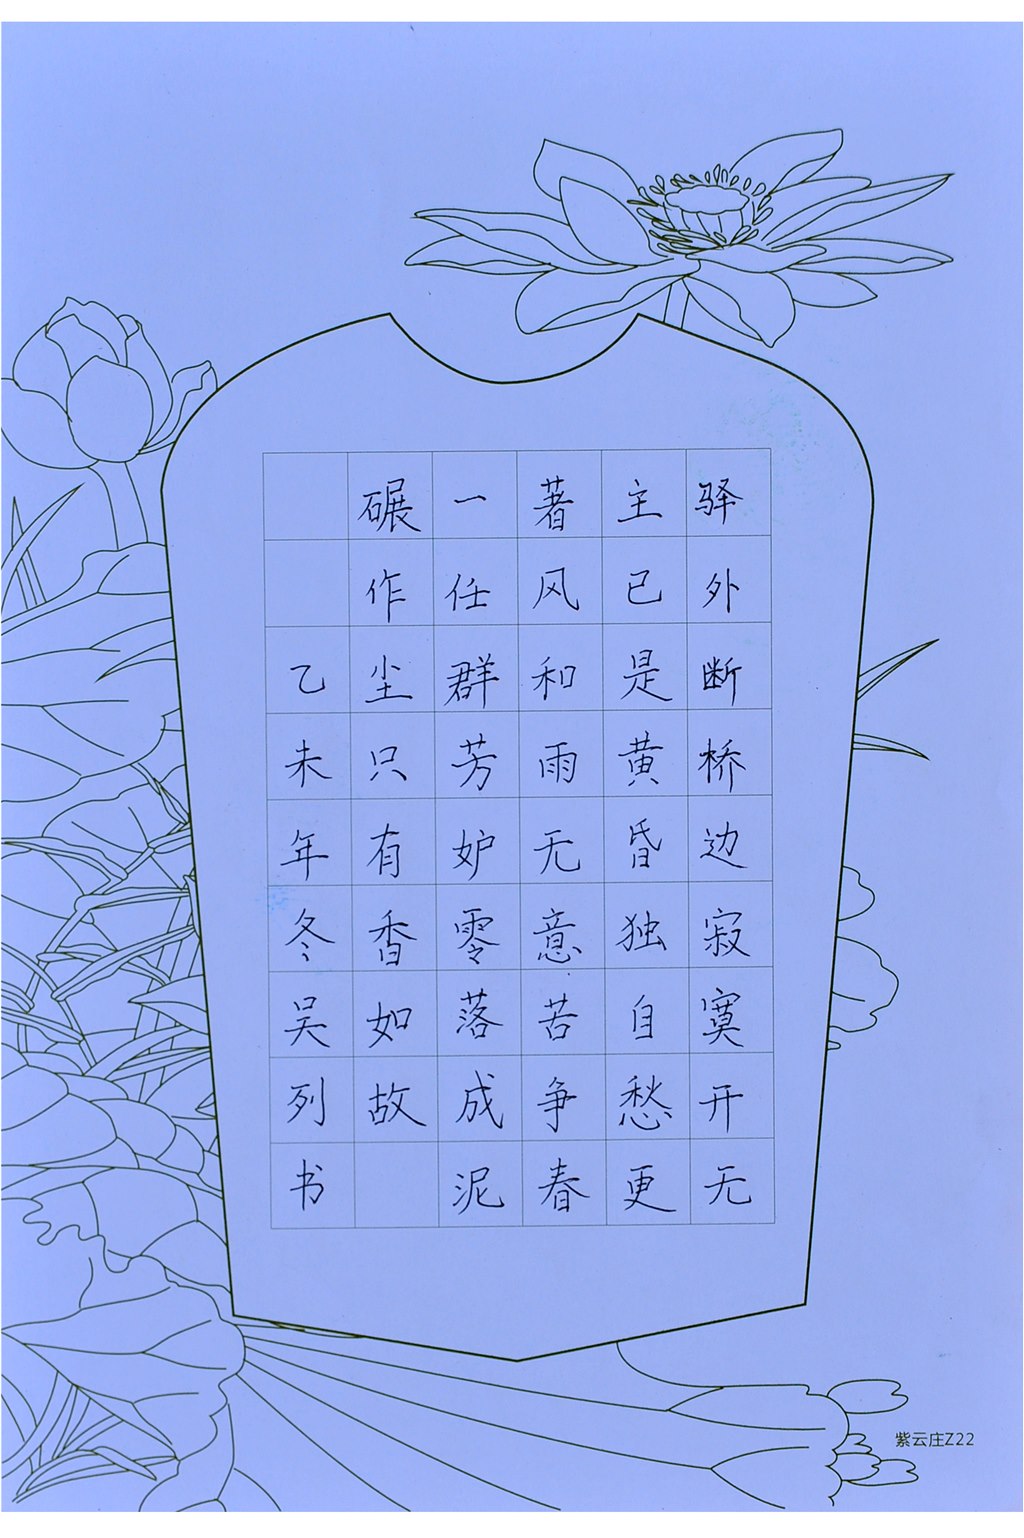 驿外断桥边寂寞开无
主已是黄昏独自愁更
著风和雨无意苦争春
一任群芳妒零落成泥
碾作尘只有香如故
乙未年冬吴列书
紫云庄Z22